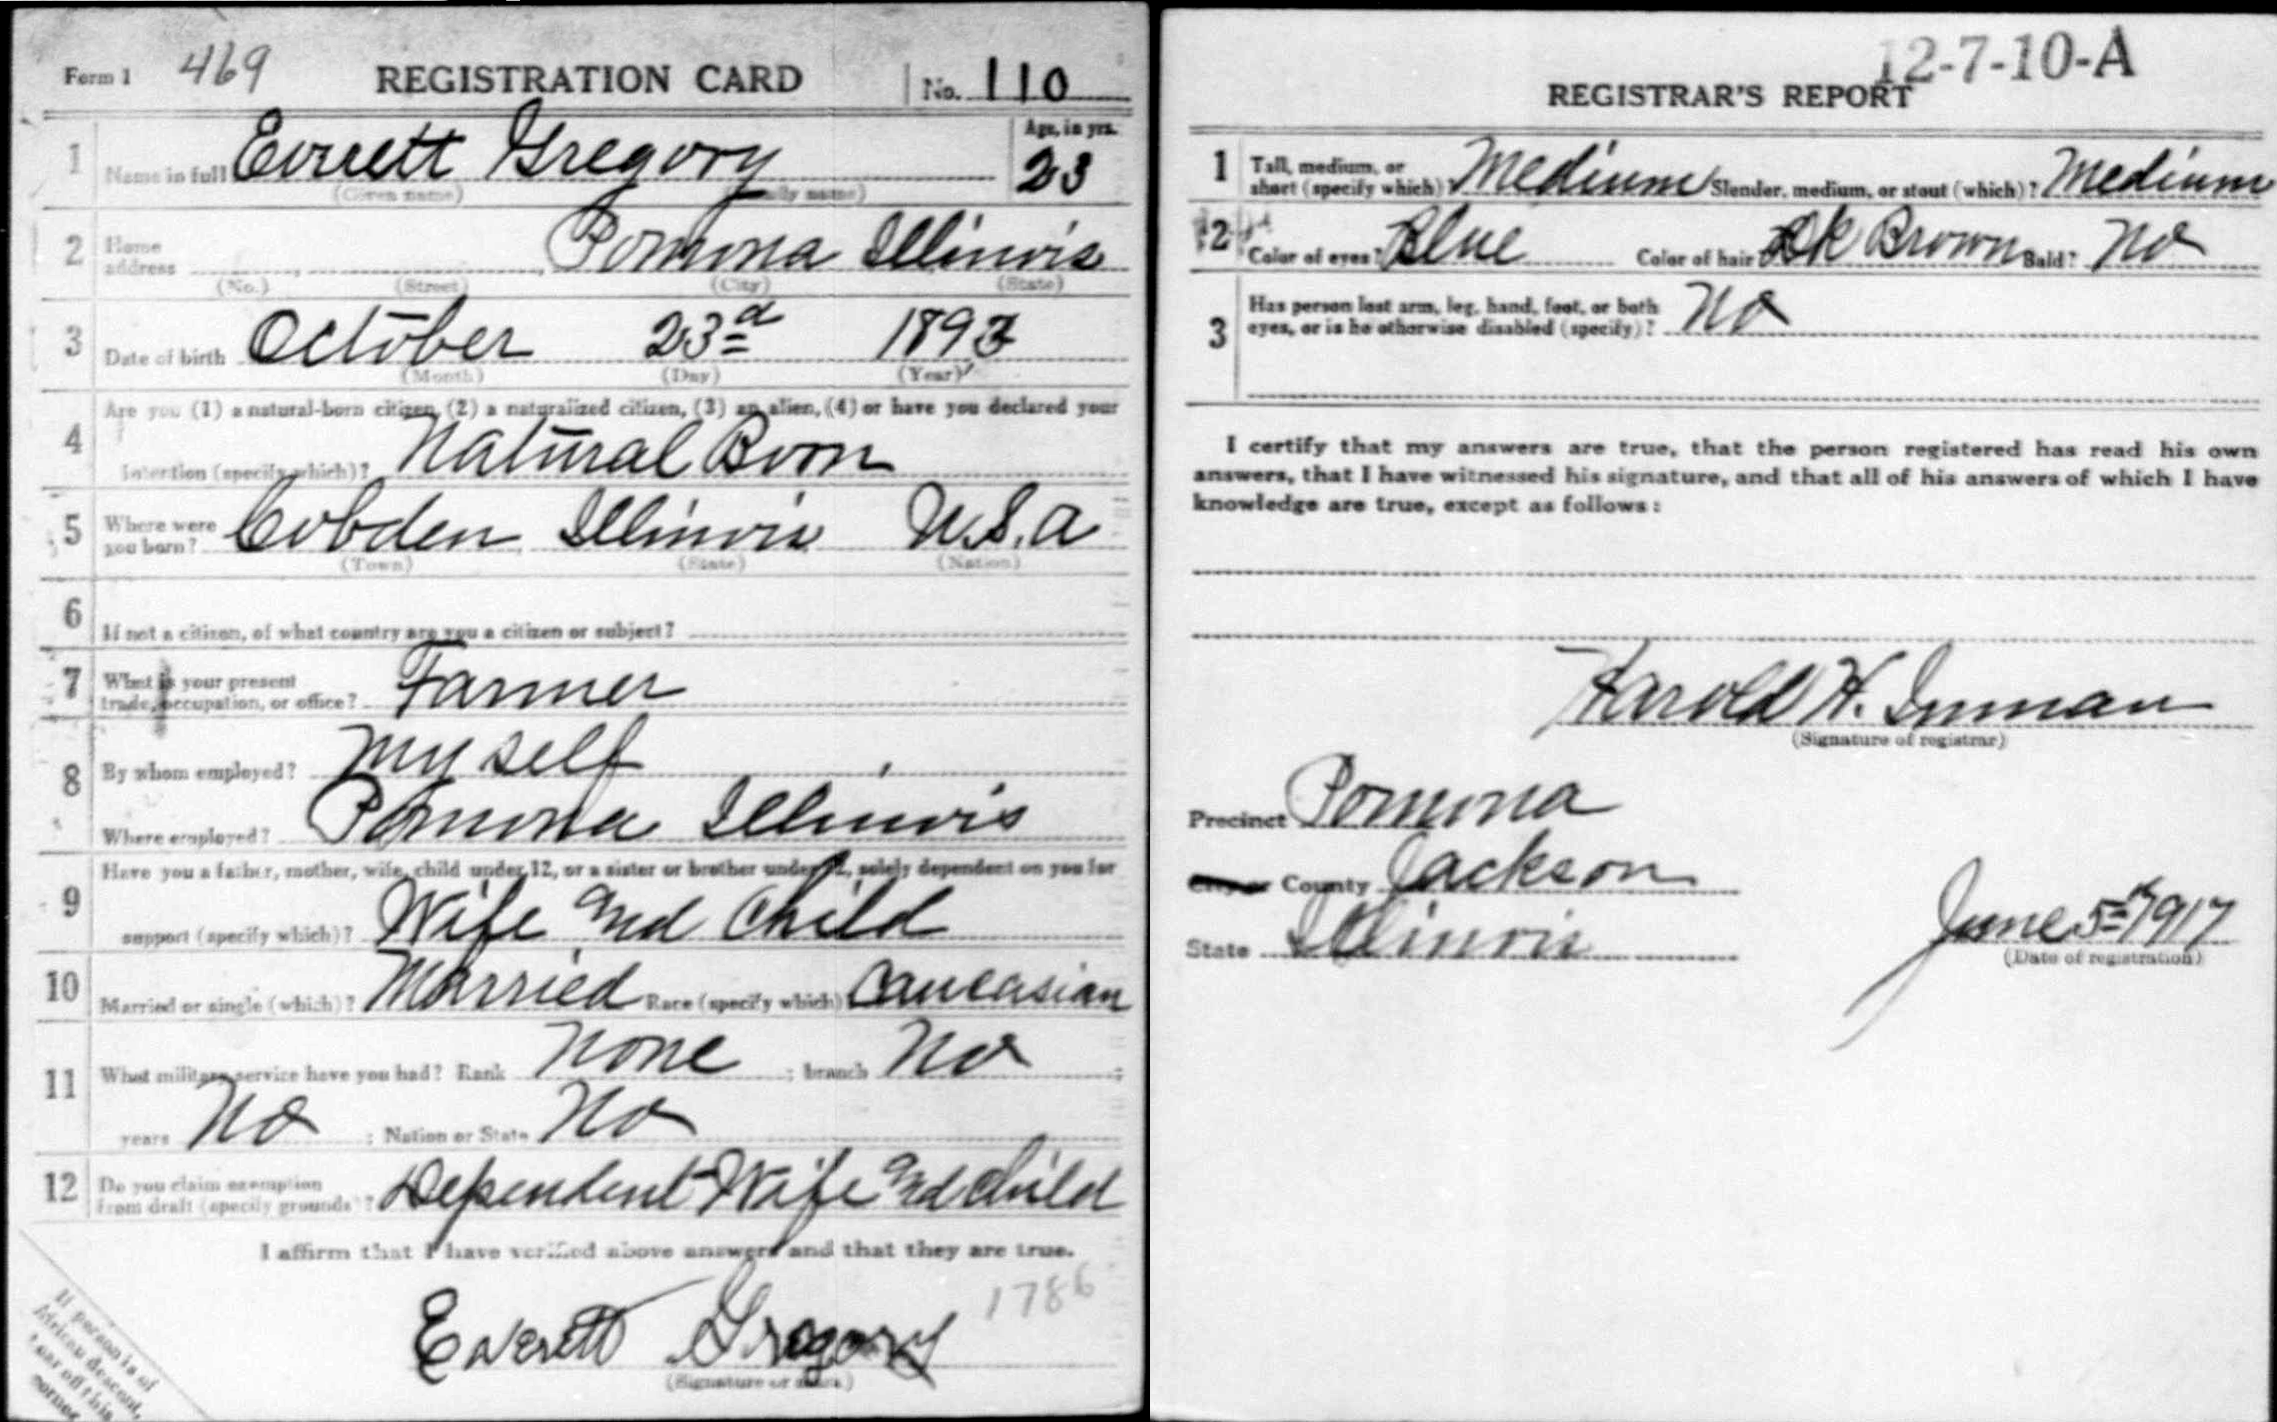 Form 1 469 REGISTRATION CARD No. 110
1 Name in full Everett Gregory Age, in yrs. 23
(Given name) (Family name)
2 Home address Pomona Illinois
(No.) (Street) (City) (State)
3 Date of birth October 23d 1893
(Month) (Day) (Year)
Are you (1) a natural-born citizen, (2) a naturalized citizen, (3) an alien, (4) or have you declared your
4 intention (specify which)? Natural Born
5 Where were you born? Cobden Illinois U.S.A
(Town) (State) (Nation)
6 If not a citizen, of what country are you a citizen or subject?
7 What is your present trade, occupation, or office? Farmer
8 By whom employed? My self
Where employed? Pomona Illinois
Have you a father, mother, wife, child under 12, or a sister or brother under 12, solely dependent on you for
9 support (specify which)? Wife and Child
10 Married or single (which)? Married Race (specify which) Caucasian
11 What military service have you had? Rank None ; branch No ;
years No ; Nation or State No
12 Do you claim exemption from draft (specify grounds)? Dependent Wife and Child
I affirm that I have verified above answers and that they are true.
1786
Everett Gregory
(Signature or mark)
If person is of
African descent,
tear off this
corner
12-7-10-A
REGISTRAR'S REPORT
1 Tall, medium, or short (specify which)? Medium Slender, medium, or stout (which)? Medium
2 Color of eyes? Blue Color of hair Dk Brown Bald? No
3 Has person lost arm, leg, hand, foot, or both
eyes, or is he otherwise disabled (specify)? No
I certify that my answers are true, that the person registered has read his own
answers, that I have witnessed his signature, and that all of his answers of which I have
knowledge are true, except as follows:
Harold H. Inman
(Signature of registrar)
Precinct Pomona
City or County Jackson
State Illinois
June 5th 1917
(Date of registration)